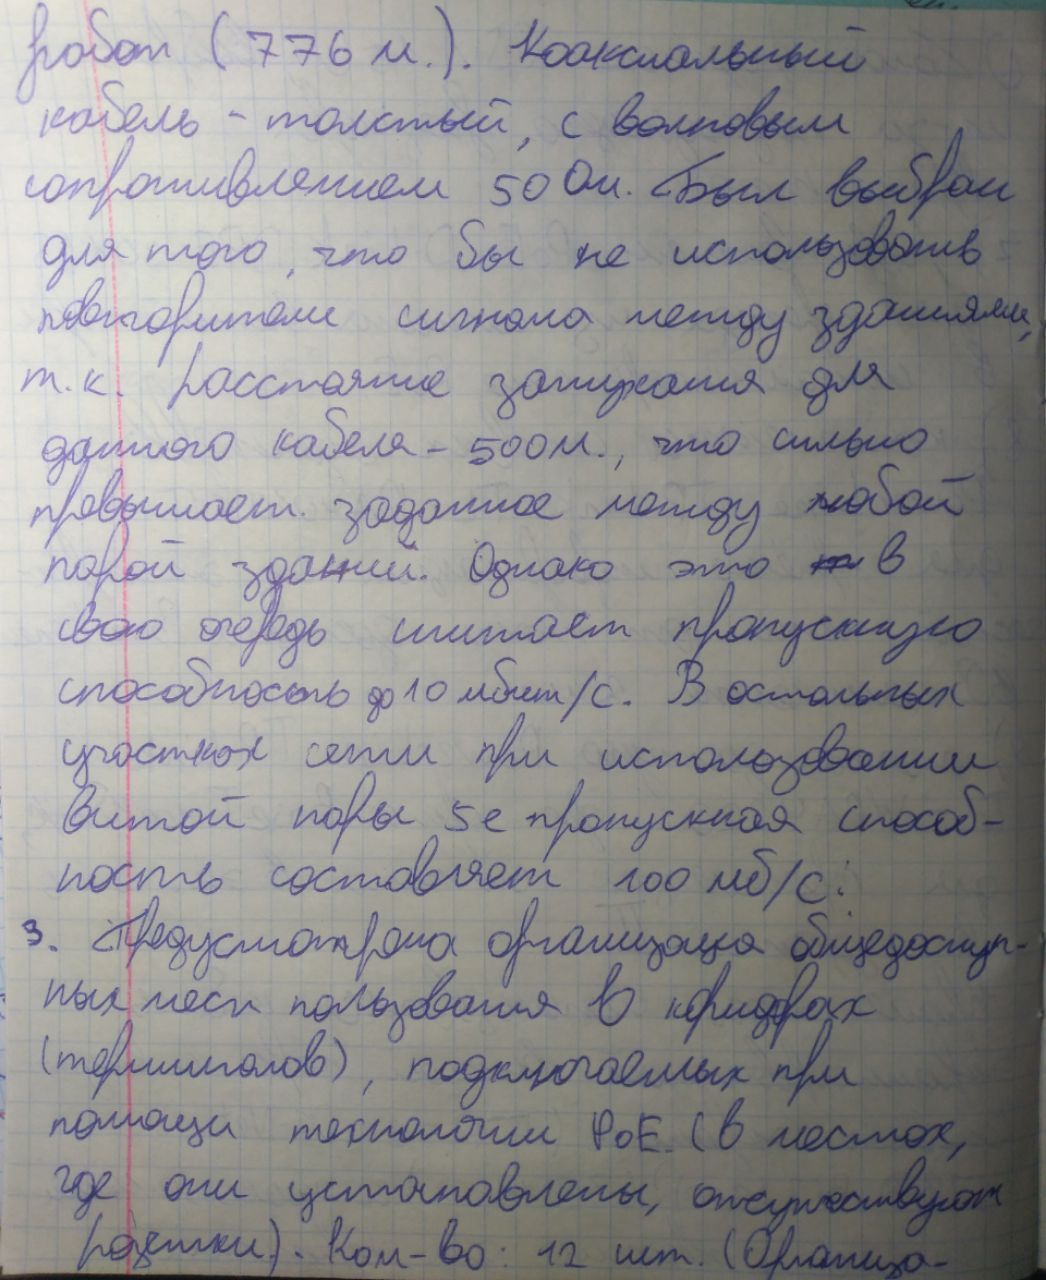 работ (776 м.). Коаксиальный
кабель - толстый, с волновым
сопротивлением 50 Ом. Был выбран
для того, что бы не использовать
повторители сигнала между зданиями,
т.к. расстояние затухания для
данного кабеля - 500м., что сильно
превышает заданное между любой
парой зданий. Однако это в
свою очередь снижает пропускную
способность до 10 мбит/с. В остальных
участках сети при использовании
витой пары 5е пропускная способ-
ность составляет 100 мб/с.
3. Предусмотрена организация общедоступ-
ных мест пользования в коридорах
(терминалов), подключаемых при
помощи технологии PoE. (в местах,
где они установлены, отсутствуют
розетки). Кол-во: 12 шт. (Организа-